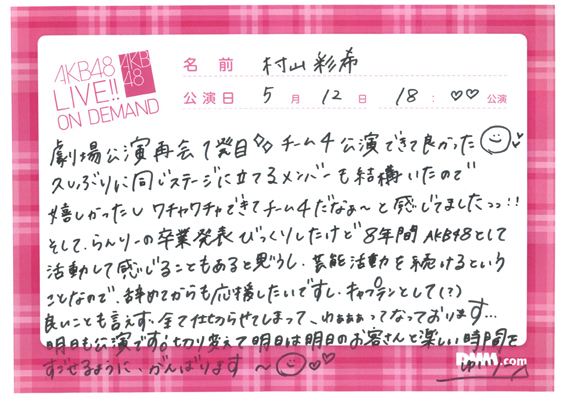 AKB48
LIVE!!
ON DEMAND
AKB
48
名前 村山彩希
公演日 5月 12日 18:♡♡公演
劇場公演再会1発目◇◇チーム4公演できて良かった
久しぶりに同じステージに立てるメンバーも結構いたので
嬉しかったしワチャワチャできてチーム4だなぁ〜と感じてましたっっ!!
そして、らんりーの卒業発表びっくりしたけど8年間AKB48として
活動して感じることもあると思うし、芸能活動を続けるという
ことなので、辞めてからも応援したいですし、キャプテンとして(?)
良いことも言えず、全て仕切らせてしまって、わぁぁぁってなっております…
明日も公演です。切り変えて明日は明日のお客さんと楽しい時間を
すごせるように、がんばります〜
DMM.com